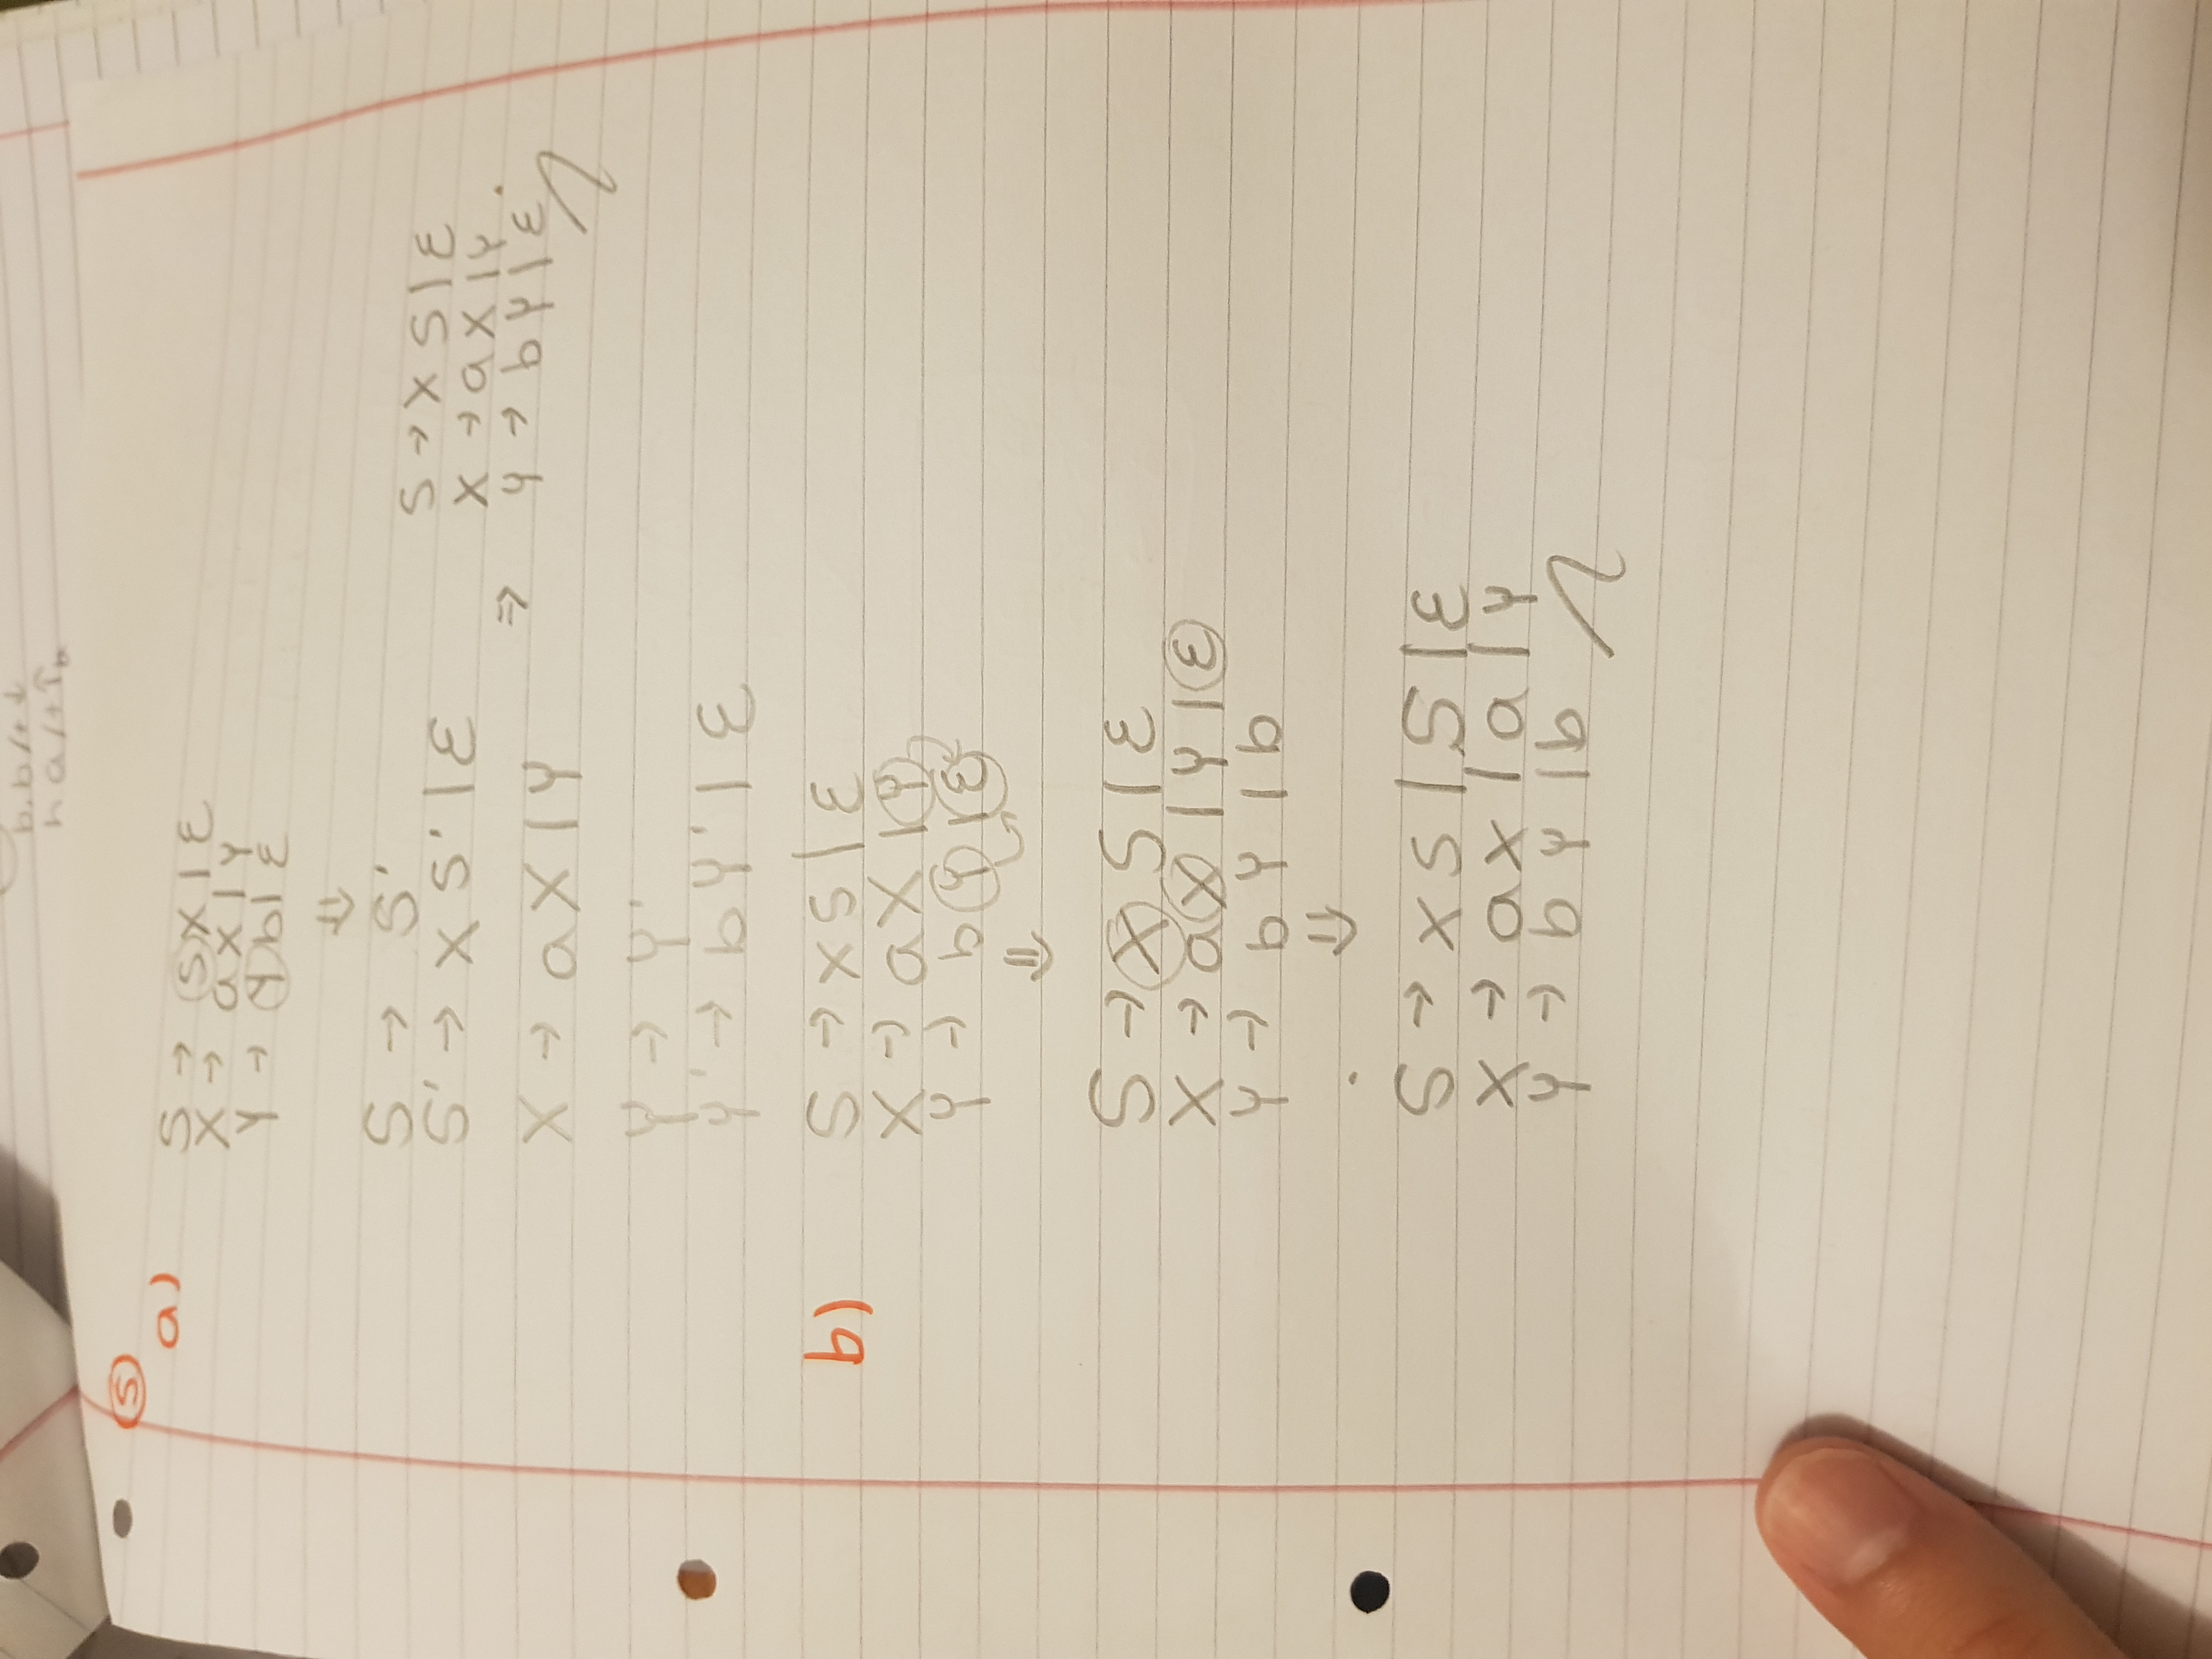 b,b/+↓
⑤
a)
S → SX | ε
X → aX | Y
Y → Yb | ε
⇓
S → S'
S' → XS' | ε
X → aX | Y
Y → Y'
Y' → bY' | ε
⇒
S → XS | ε
X → aX | Y
Y → bY | ε
b)
S → XS | ε
X → aX | Y
Y → bY | ε
⇓
S → XS | ε
X → aX | Y | ε
Y → bY | b
⇓
S → XS | S | ε
X → aX | a | Y
Y → bY | b